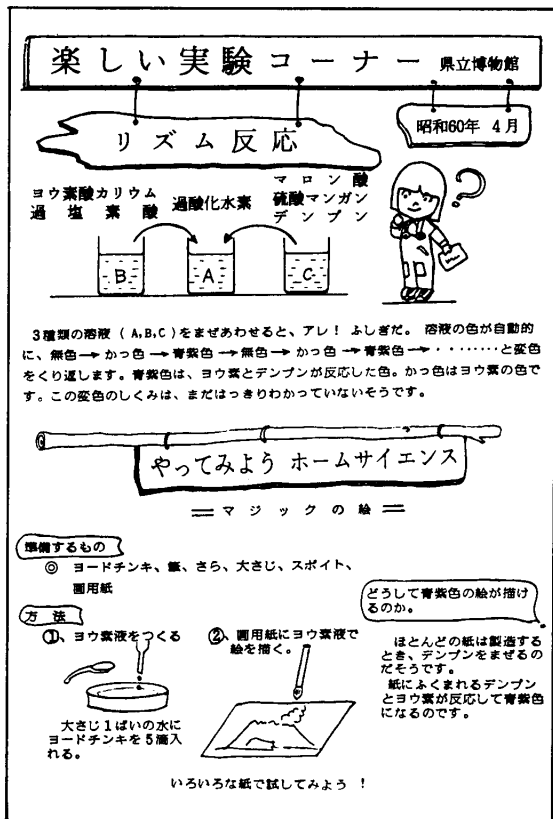 楽しい実験コーナー 県立博物館
リズム反応
昭和60年 4月
ヨウ素酸カリウム
過塩素酸
過酸化水素
マロン酸
硫酸マンガン
デンプン
B
A
C
?
3種類の溶液(A,B,C)をまぜあわせると、アレ! ふしぎだ。 溶液の色が自動的
に、無色→かっ色→青紫色→無色→かっ色→青紫色→・・・・・・・・と変色
をくり返します。青紫色は、ヨウ素とデンプンが反応した色。かっ色はヨウ素の色で
す。この変色のしくみは、まだはっきりわかっていないそうです。
やってみよう ホームサイエンス
==マジックの絵==
準備するもの
◎ ヨードチンキ、筆、さら、大さじ、スポイト、
画用紙
方法
①、ヨウ素液をつくる
大さじ1ぱいの水に
ヨードチンキを5滴入
れる。
②、画用紙にヨウ素液で
絵を描く。
どうして青紫色の絵が描け
るのか。
ほとんどの紙は製造する
とき、デンプンをまぜるの
だそうです。
紙にふくまれるデンプン
とヨウ素が反応して青紫色
になるのです。
いろいろな紙で試してみよう !